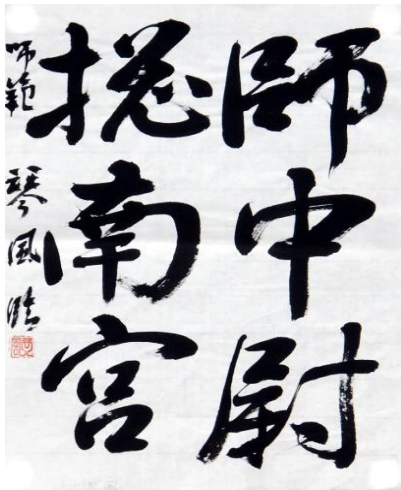 師中尉
揔南宮
師範 琴風